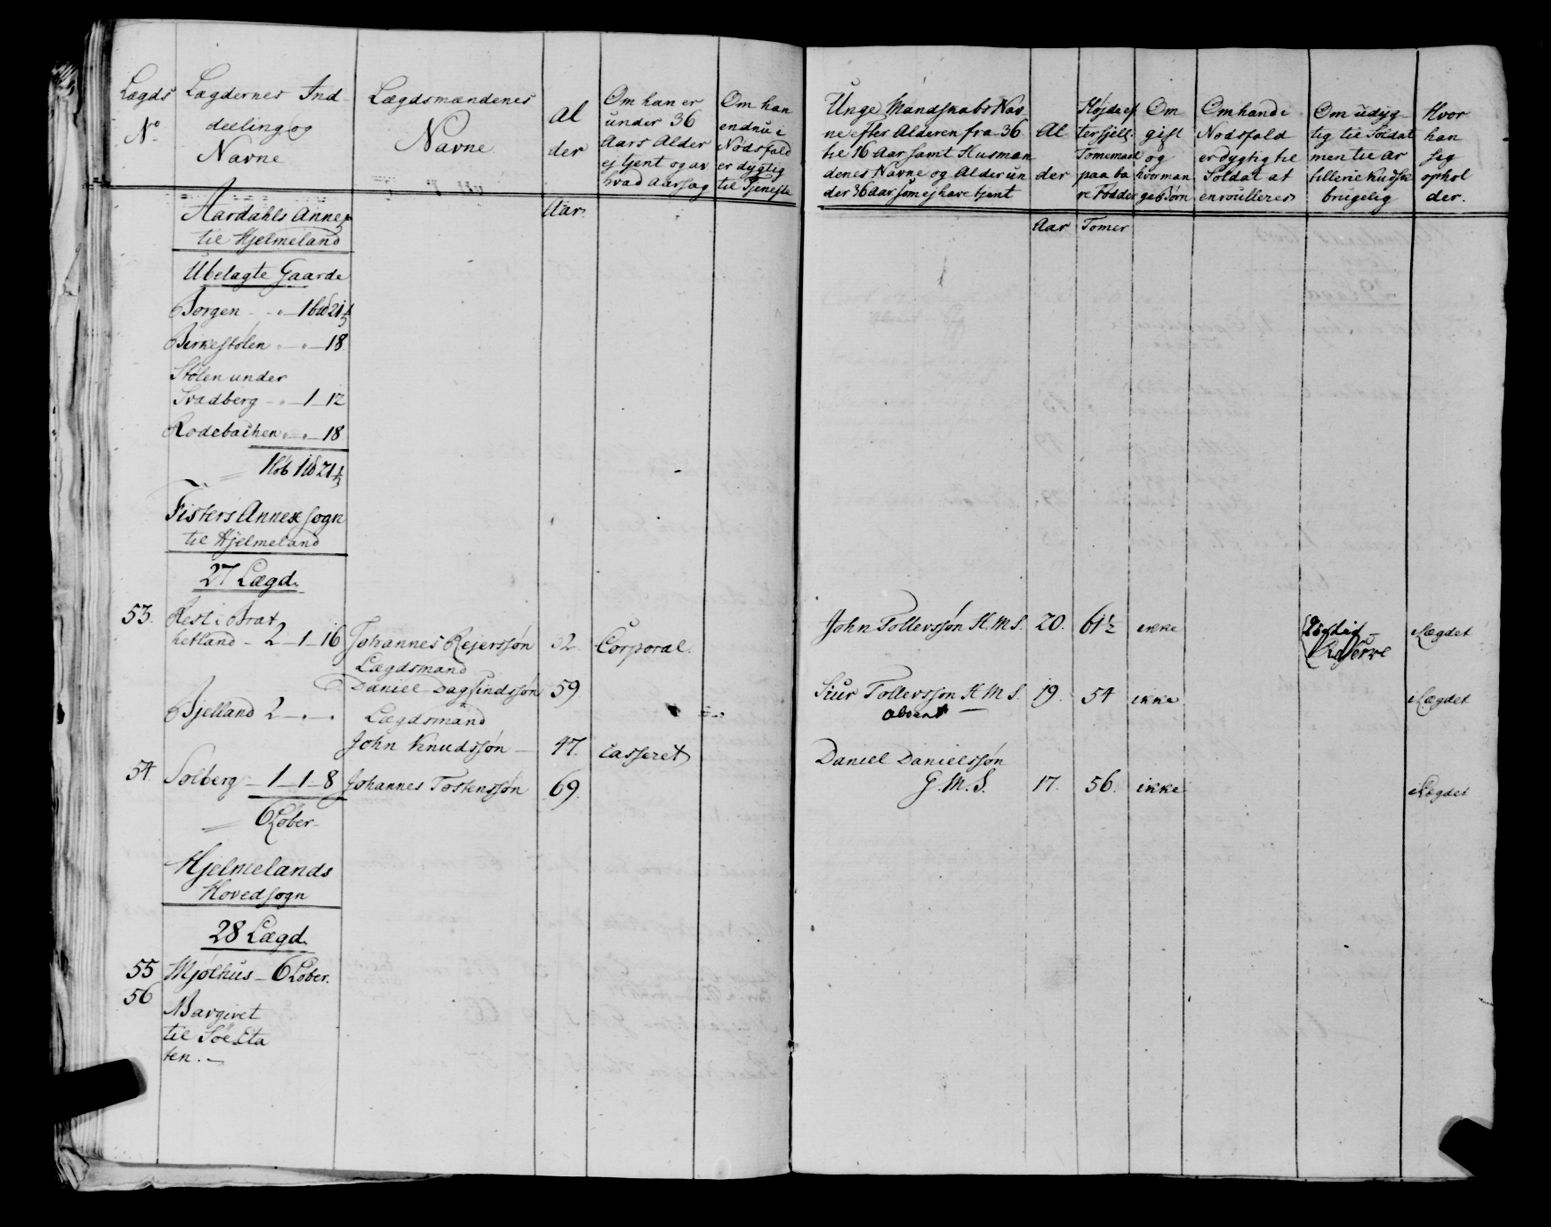 Lægds
No
Lægdernes Ind
deeling og
Navne
Lægdsmændenes
Navne
Al
der
Om han er
under 36
Aars Alder
ej tjent og av
hvad Aarsag
Om han
endnu i
Nødsfald
er dygtig
til Tjeneste
Unge Mandskabs Nav
ne efter Alderen fra 36
til 16 Aar samt Husmæn
denes Navne og Alder un
der 36 Aar som ej have tjent
Al
der
Højde ef
ter Sjell.
Tomemaal
paa ba
re Fødder
Om
gift
og
hvorman
ge Børn
Om hand i
Nødsfald
er dygtig til
Soldat at
enroulleres
Om udyg
tig til Soldat
men til Ar
tillerie Kudsk
brugelig
Hvor
han
sig
ophol
der.
Aar.
Aar
Tomer
Aardahls Annex
til Hjelmeland
Ubelagte Gaarde
Borgen - - 1 bd 21 3/5
Birkestølen - - 18
Stølen under
Svadberg - - 1 - 12
Rodebakken - - 18
Fisters Annex sogn
til Hjelmeland
27 Lægd.
53. Rest i Brat
hetland - 2 - 1 - 16 Johannes Rejersøn 32. Corporal. John Tollevssøn H.M.S. 20. 61 1/2 ikke Dygtig Reserve i Lægdet
Lægdsmand
Daniel Dagfindssøn 59 Siur Tollevssøn H.M.S. 19. 54 ikke i Lægdet
Bjelland 2 - - Lægdsmand
Absent
John Knudssøn - 47. Casseret Daniel Danielssøn
54. Solberg - 1 - 1 - 8 Johannes Tostenssøn 69. G.M.S. 17. 56. ikke i Lægdet
6 Løber.
Hjelmelands
Hovedsogn
28 Lægd.
55 Mjølhus - 6 Løber.
56
Bargivet
til Søe Eta
ten. -